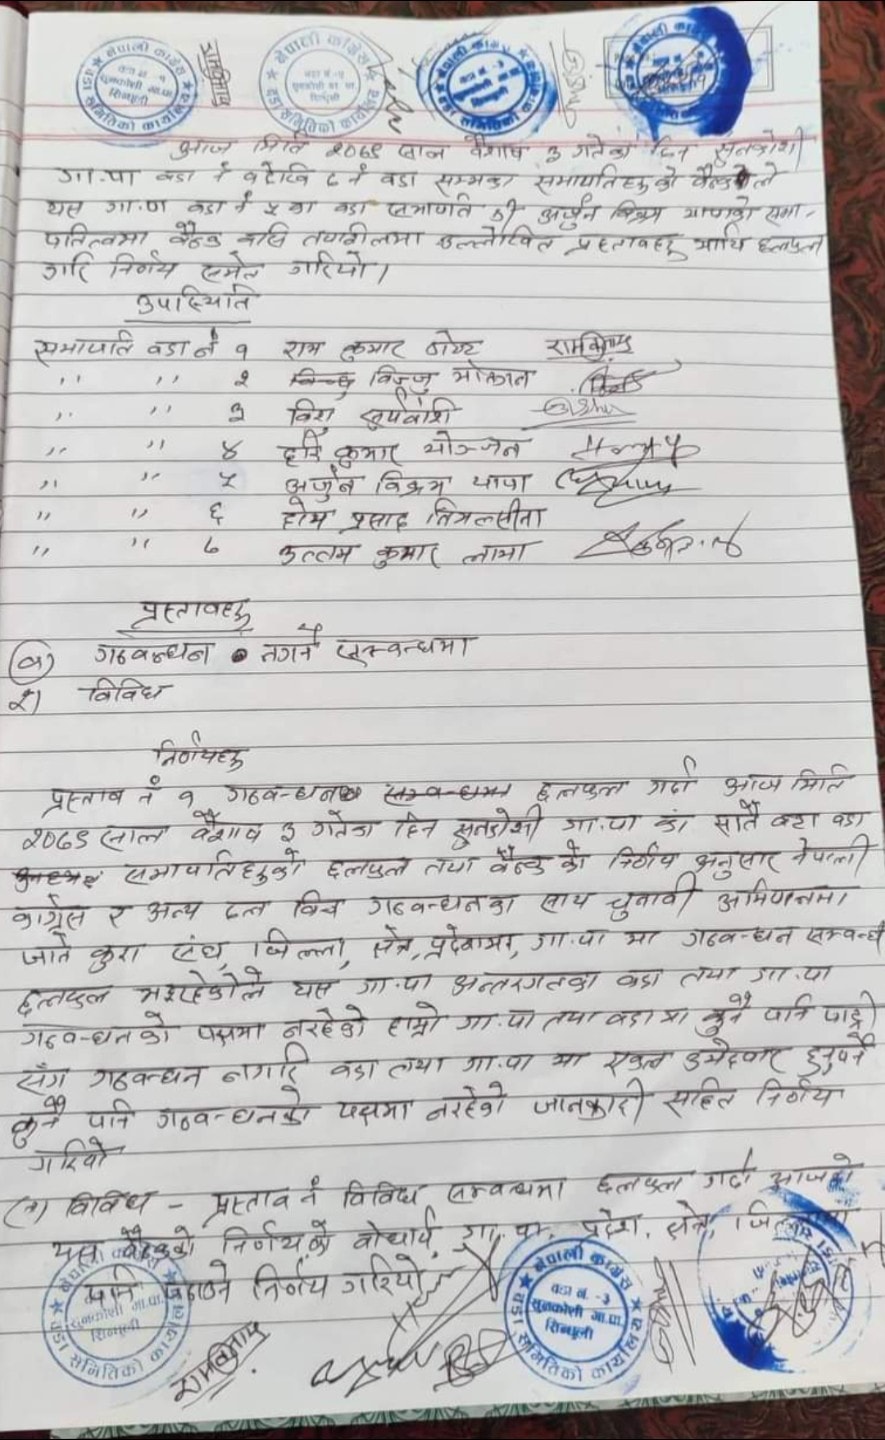 नेपाली काँग्रेस
वडा नं. १
सुनकोशी गा.पा.
सिन्धुली
वडा समितिको कार्यालय
नेपाली काँग्रेस
सुनकोशी गा.पा.
सिन्धुली
वडा समितिको कार्यालय
नेपाली काँग्रेस
वडा नं. ३
सिन्धुली
वडा समितिको कार्यालय
आज मिति २०७९ साल बैशाख ३ गतेका दिन सुनकोशी
गा.पा वडा नं १ देखि ७ नं वडा सम्मका सभापतिहरुको बैठकले
यस गा.पा वडा नं ५ का वडा सभापति श्री अर्जुन बिक्रम थापाको सभा-
पतित्वमा बैठक बसि तपशिलमा उल्लेखित प्रस्तावहरु माथि छलफल
गरि निर्णय समेत गरियो।
उपस्थिति
सभापति वडा नं १ राम कुमार श्रेष्ठ
,, ,, २ विज्जु भोकान्त
,, ,, ३ विरा सुर्यवंशी
,, ,, ४ हरि कुमार योञ्जन
,, ,, ५ अर्जुन बिक्रम थापा
,, ,, ६ होम प्रसाद तिमल्सीना
,, ,, ७ उत्तम कुमार लामा
प्रस्तावहरु
१) गठबन्धन नगर्ने सम्बन्धमा
२) विविध
निर्णयहरु
प्रस्ताव नं १ गठबन्धन सम्बन्धमा छलफल गर्दा आज मिति
२०७९ साल बैशाख ३ गतेका दिन सुनकोशी गा.पा का सातै वटा वडा
सभापतिहरुको छलफल तथा बैठकको निर्णय अनुसार नेपाली
काग्रेस र अन्य दल बिच गठबन्धनका साथ चुनावी अभियानमा
जाने कुरा संघ, जिल्ला, क्षेत्र, प्रदेशमा, गा.पा मा गठबन्धन सम्बन्धी
छलफल भइरहेकोले यस गा.पा अन्तरगतका वडा तथा गा.पा
गठबन्धनको पक्षमा नरहेको हाम्रो गा.पा तथा वडामा कुनै पनि पार्टी
सँग गठबन्धन नगरि वडा तथा गा.पा मा एकल उमेदवार हुनुपर्ने
कुनै पनि गठबन्धनको पक्षमा नरहेको जानकारी सहित निर्णय
गरियो
२) विविध - प्रस्ताव नं विविध सम्बन्धमा छलफल गर्दा आजको
यस बैठकको निर्णय को बोधार्थ गा.पा. प्रदेश, क्षेत्र,
पनि पठाउने निर्णय गरियो
नेपाली काँग्रेस
सुनकोशी गा.पा.
सिन्धुली
वडा समितिको कार्यालय
नेपाली काँग्रेस
वडा नं. ३
सुनकोशी गा.पा.
सिन्धुली
वडा समितिको कार्यालय